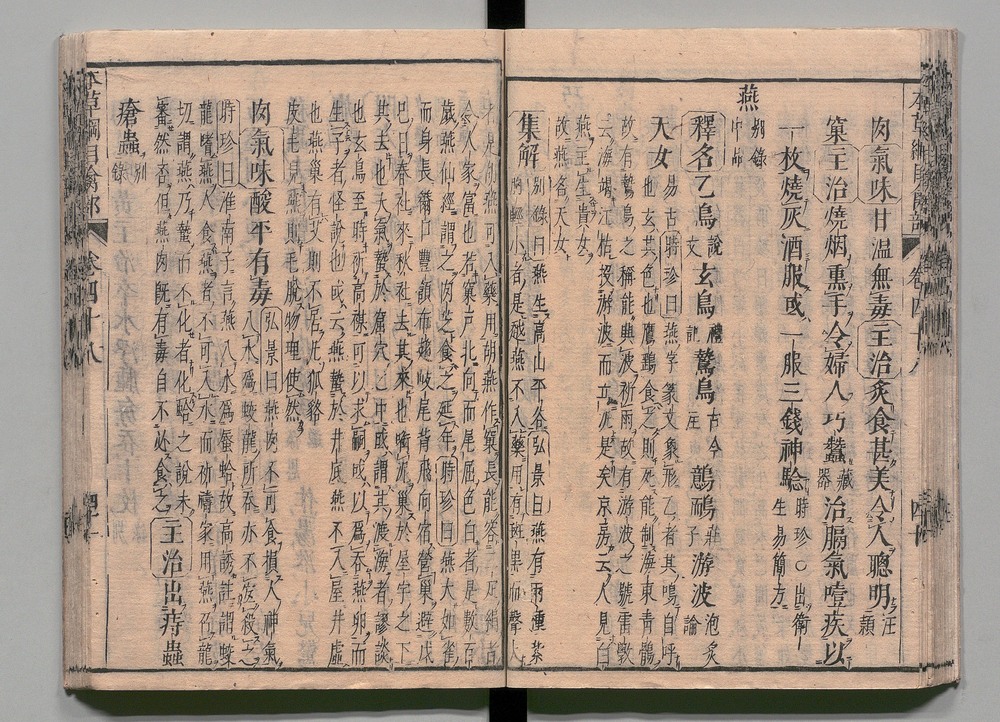 肉氣味甘溫無毒主治炙食甚美令人聰明汪頴
窠主治燒烟熏手令婦人巧蠶藏器治膈氣噎疾以
一枚燒灰酒服或一服三錢神驗時珍○出衛生易簡方
燕別錄中品
釋名乙鳥說文玄鳥禮記鷙鳥古今注鷾鴯莊子游波炮炙論
天女易占時珍曰燕字篆文象形乙者其鳴自呼
也玄其色也鷹鷂食之則死能制海東青鶻
故有鷙鳥之稱能興波祈雨故有游波之號雷斅
云海竭江枯投游波而立泛是矣京房云人見白
燕主生貴女
故燕名天女
集解別錄曰燕生高山平谷弘景曰燕有兩種紫
胸輕小者是越燕不入藥用有斑黑而聲大
者是胡燕可入藥用胡燕作窠長能容二疋絹者
令人家富也若窠戶北向而尾屈色白者是數百
歲燕仙經謂之肉芝食之延年時珍曰燕大如雀
而身長籋口豐頷布翅岐尾背飛向宿營巢避戊
巳日春社來秋社去其來也啣泥巢於屋宇之下
其去也伏氣蟄於窟穴之中或謂其渡海者謬談
也玄鳥至時祈高禖可以求嗣或以為吞燕卵而
生子者怪說也或云燕蟄於井底燕不入屋井虛
也燕巢有艾則不居凡狐貉
皮毛見燕則毛脫物理使然
肉氣味酸平有毒弘景曰燕肉不可食損人神氣
入水為蛟龍所吞亦不宜殺之
時珍曰淮南子言燕入水為蜃蛤故高誘註謂蛟
龍嗜燕人食燕者不可入水而祈禱家用燕召龍
切謂燕乃蟄而不化者化蛤之說未
審然否但燕肉旣有毒自不必食之主治出痔蟲
瘡蟲別錄
本草綱目禽部
卷四十八
四十